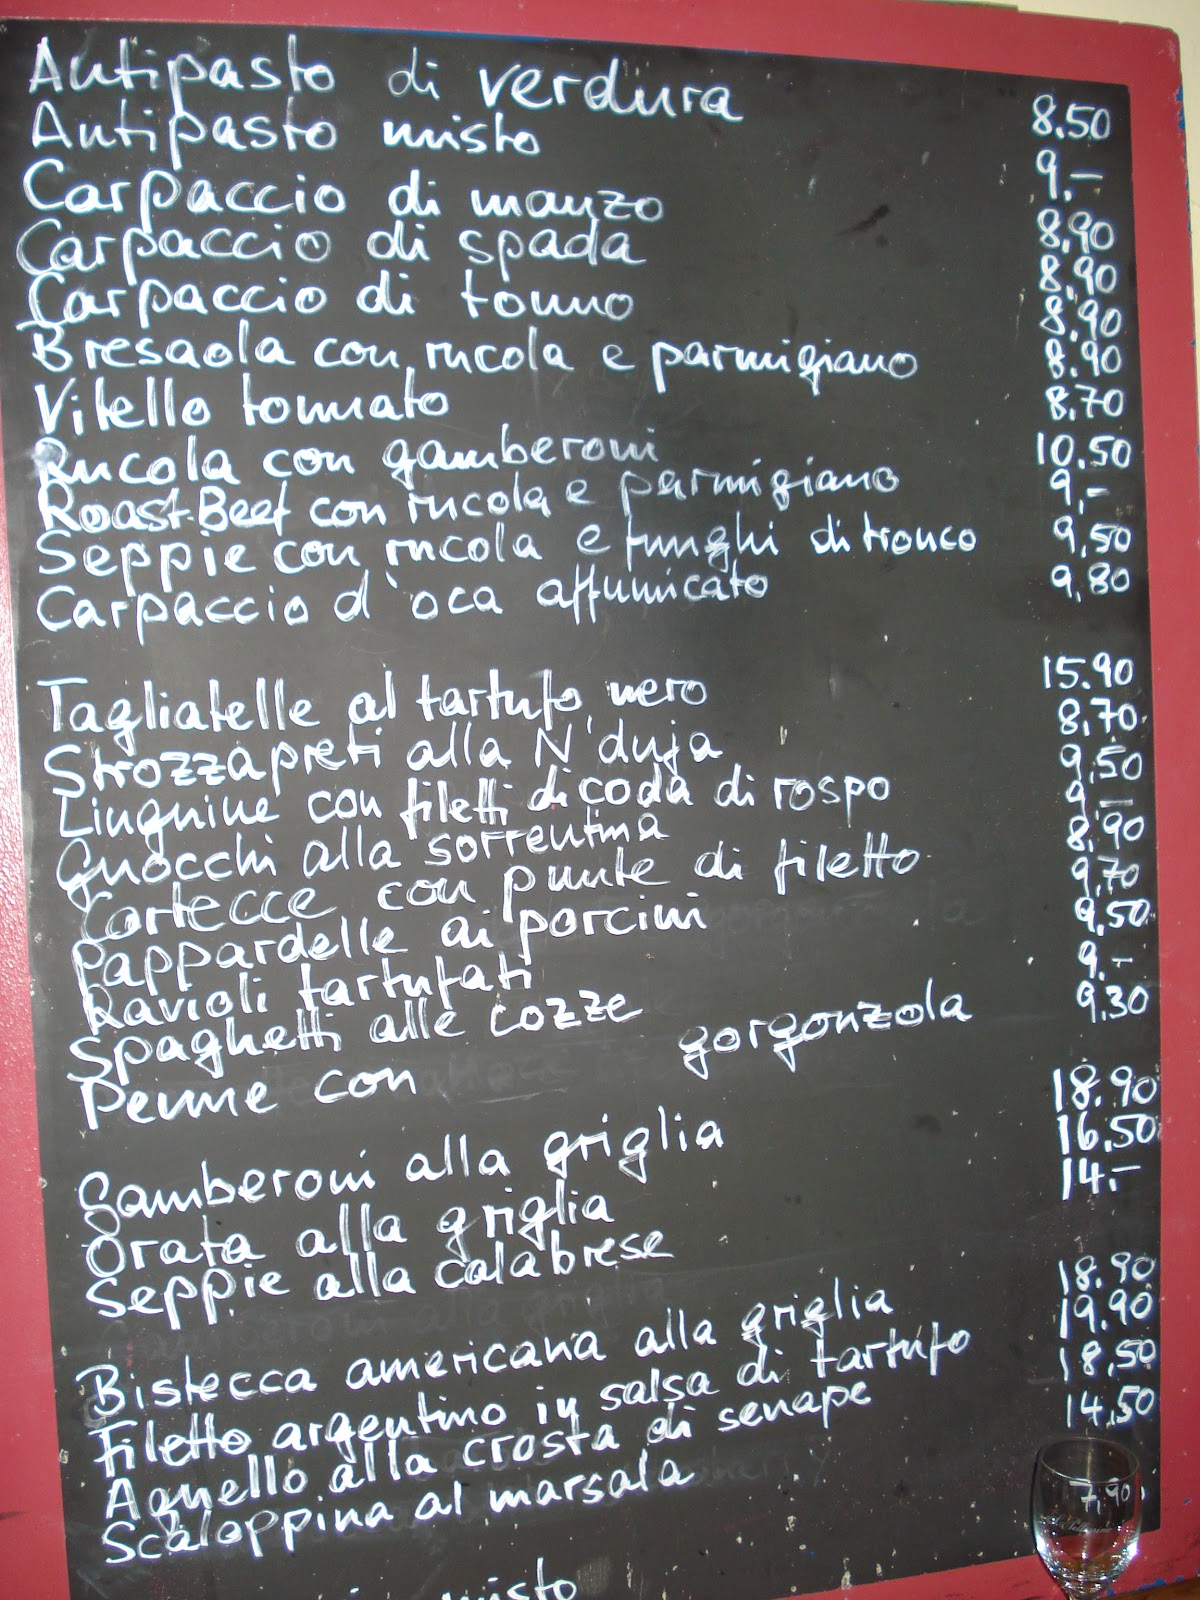 Antipasto di verdura 8.50
Antipasto misto 9.-
Carpaccio di manzo 8,90
Carpaccio di spada 8,90
Carpaccio di tonno 8,90
Bresaola con rucola e parmigiano 8.90
Vitello tonnato 8,70
Rucola con gamberoni 10.50
Roast-Beef con rucola e parmigiano 9,-
Seppie con rucola e funghi di tronco 9,50
Carpaccio d'oca affumicato 9,80
Tagliatelle al tartufo nero 15.90
Strozzapreti alla N'duja 8,70
Linguine con filetti di coda di rospo 9,50
Gnocchi alla sorrentina 9,-
Cortecce con punte di filetto 8,90
Pappardelle ai porcini 9,70
Ravioli tartufati 9,50
Spaghetti alle cozze 9.-
Penne con gorgonzola 9.30
Gamberoni alla griglia 18.90
Orata alla griglia 16.50
Seppie alla calabrese 14.-
Bistecca americana alla griglia 18.90
Filetto argentino in salsa di tartufo 19.90
Agnello alla crosta di senape 18,50
Scaloppina al marsala 14,50
misto 7,90